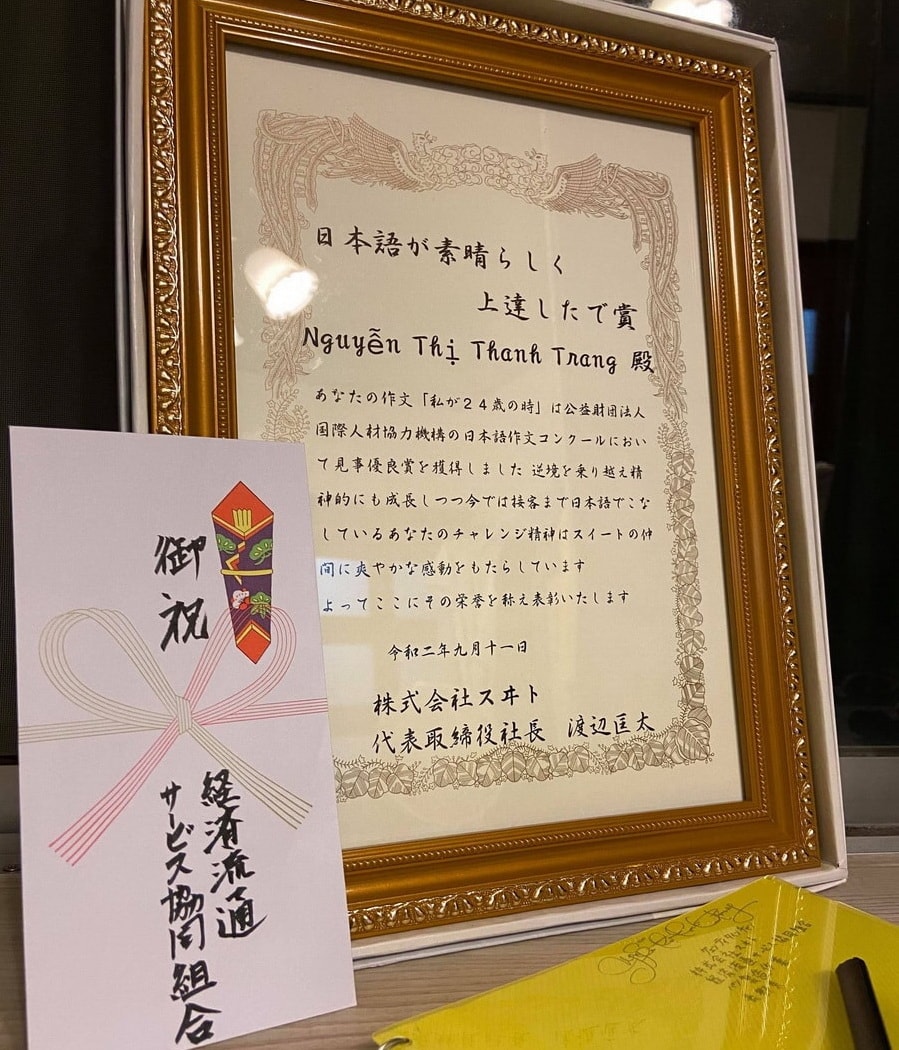 日本語が素晴らしく
上達したで賞
Nguyễn Thị Thanh Trang 殿
あなたの作文「私が２４歳の時」は公益財団法人
国際人材協力機構の日本語作文コンクールにおい
て見事優良賞を獲得しました 逆境を乗り越え精
神的にも成長しつつ今では接客まで日本語でこな
しているあなたのチャレンジ精神はスイートの仲
間に爽やかな感動をもたらしています
よってここにその栄誉を称え表彰いたします
令和二年九月十一日
株式会社スヰト
代表取締役社長　渡辺匡太
御祝
経済流通
サービス協同組合